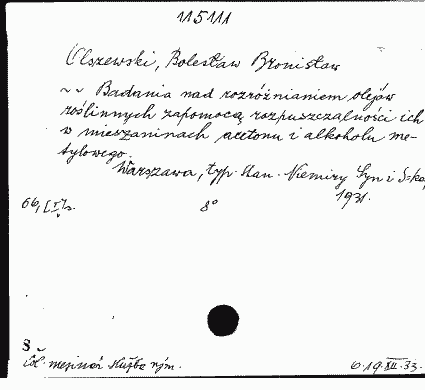 115111
Olszewski, Bolesław Bronisław
~ ~ Badania nad rozróżnianiem olejów
roślinnych zapomocą rozpuszczalności ich
w mieszaninach acetonu i alkoholu me-
tylowego.
Warszawa, typ. Stan. Niemiry Syn i S-ka,
1931.
66, [1] s. 8°
§
6.19.XII.33.